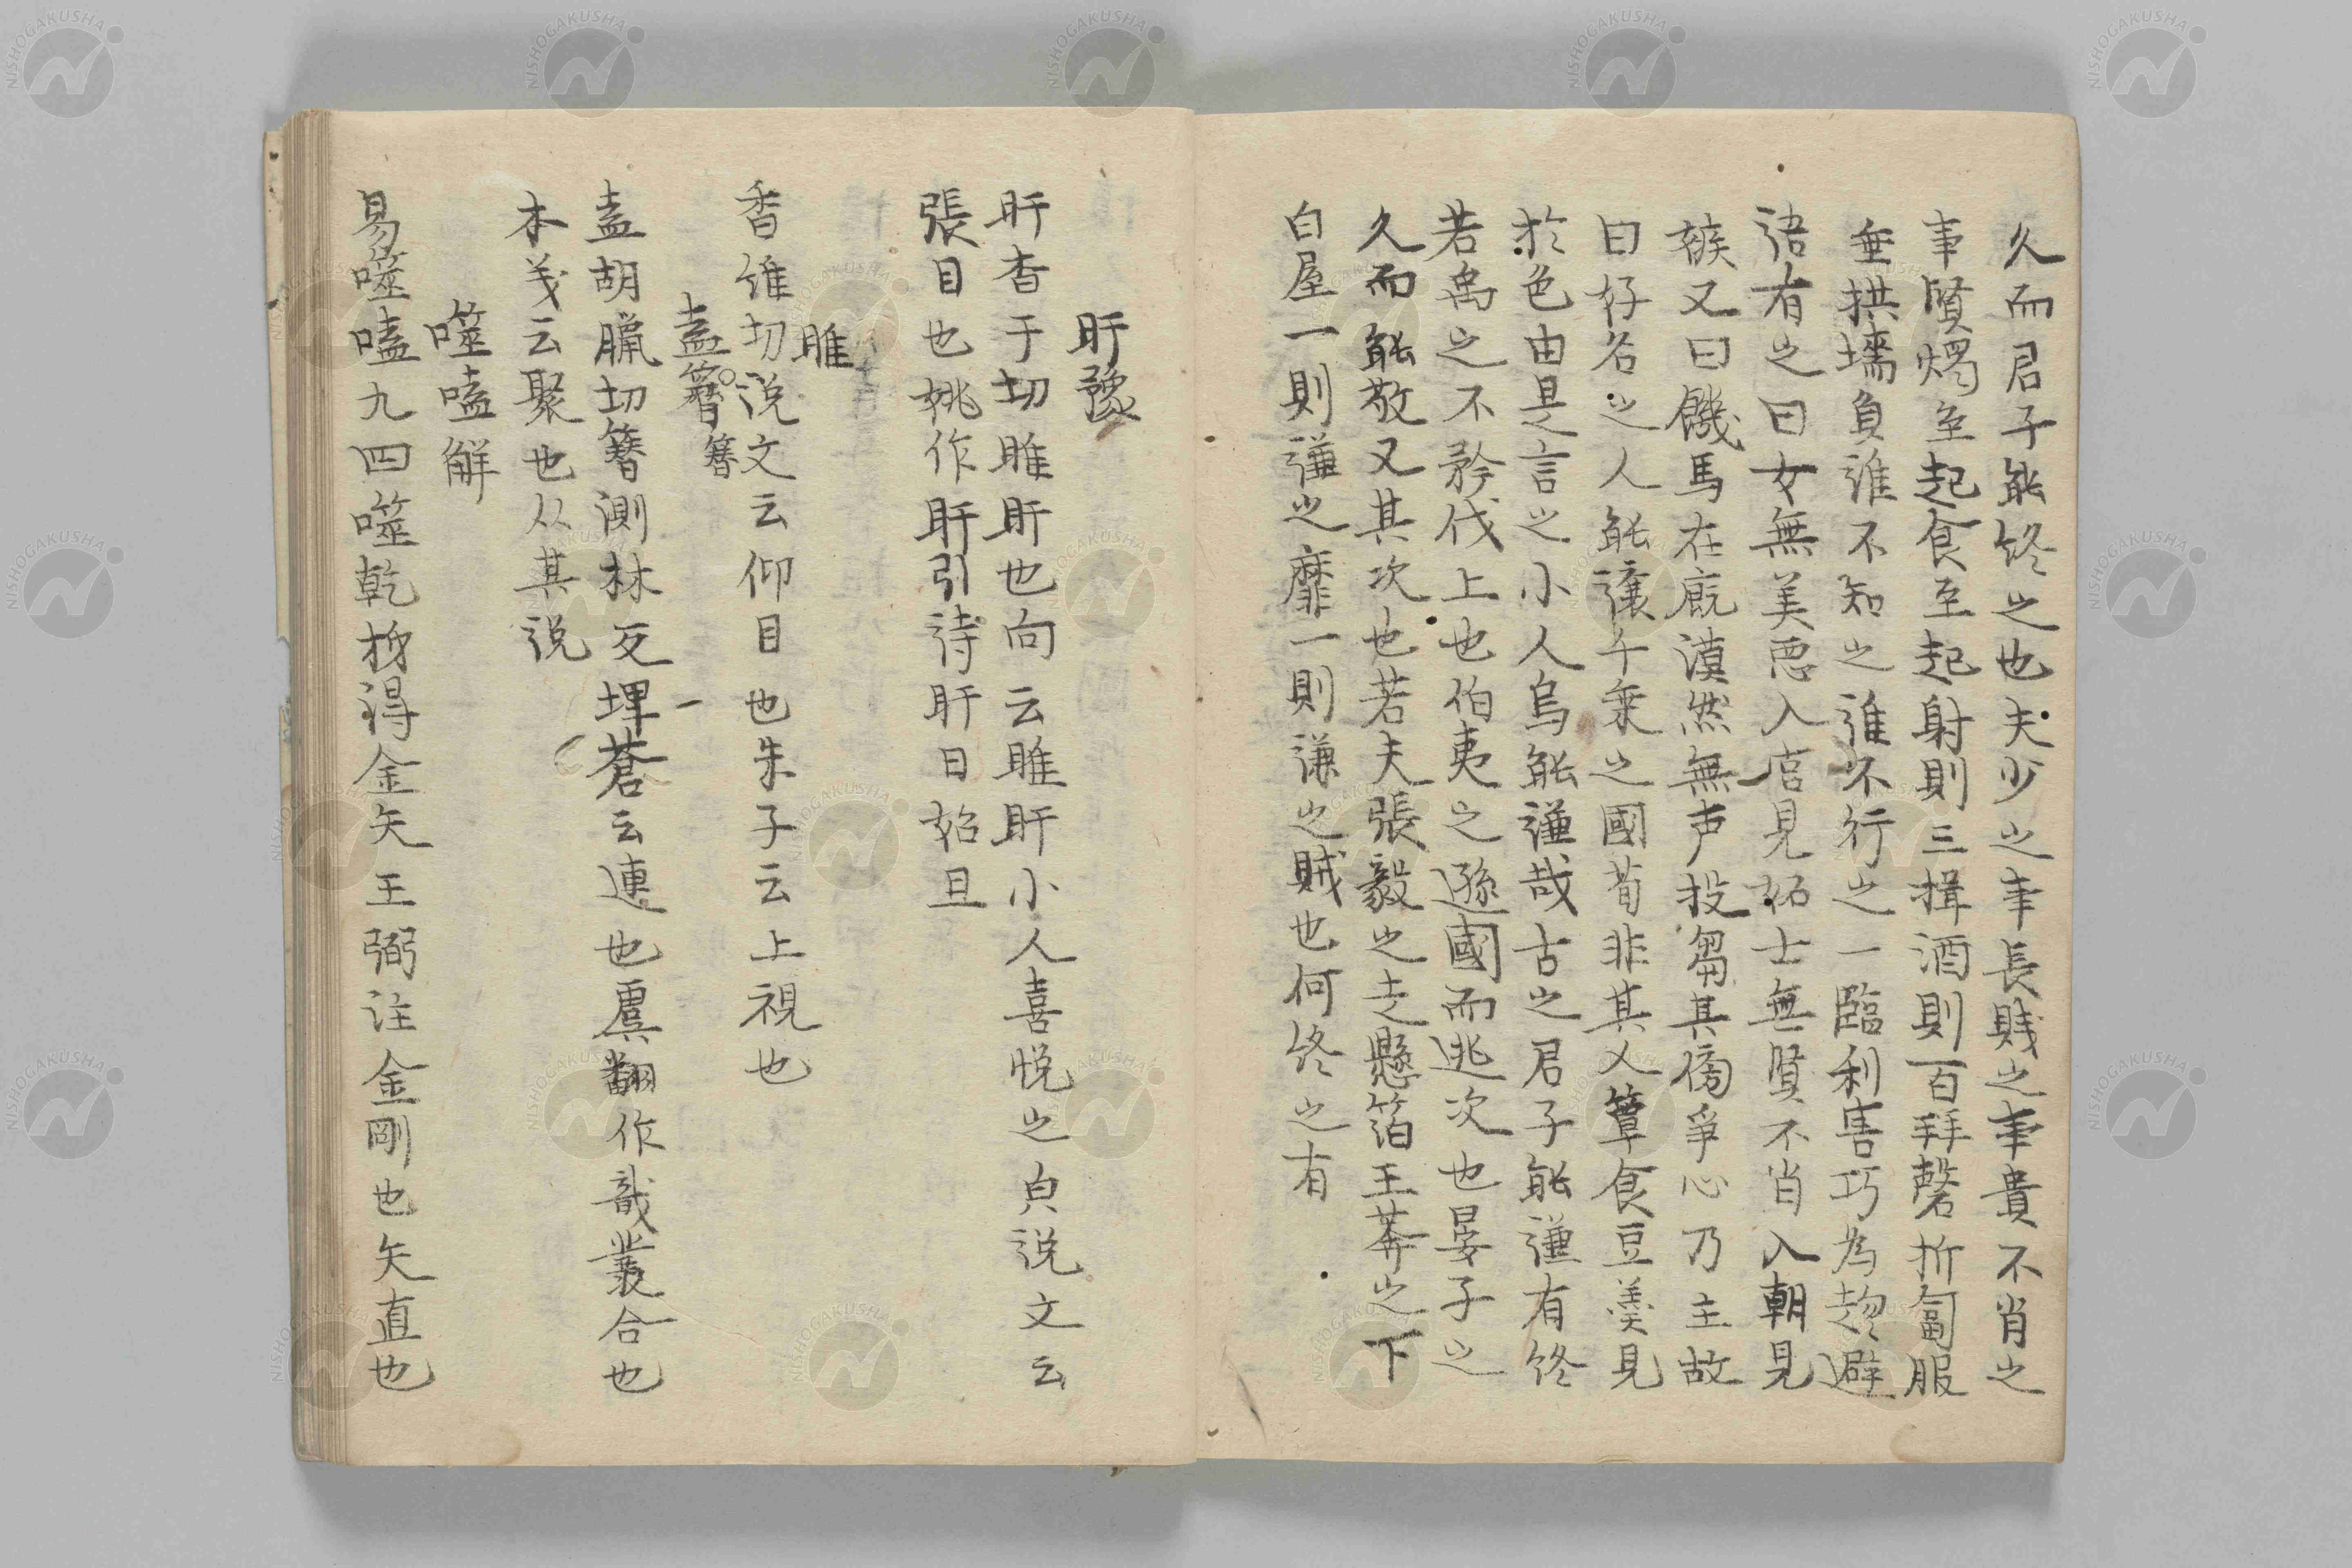 久而君子能終之也夫少之事長賎之事貴不肖之
事賢燭至起食至起射則三揖酒則百拜磬折匍服
垂拱壖負誰不知之誰不行之一臨利害巧為趍避
語有之曰女無美悪入宮見妬士無賢不肖入朝見
嫉又曰饑馬在廐漠然無声投芻其傍爭心乃主故
曰好名之人能讓千乗之國荀非其人簞食豆羹見
於色由是言之小人烏能謙哉古之君子能謙有終
若禹之不矜伐上也伯夷之遜國而逃次也晏子之
久而能敬又其次也若夫張毅之走懸箔王莽之下
白屋一則謙之靡一則謙之賊也何終之有
盱豫
盱香于切睢盱也向云睢盱小人喜悦之皃説文云
張目也姚作盱引待盱日始旦
睢
香維切説文云仰目也朱子云上視也
盍簪簪
盍胡臘切簪測林反埤蒼云連也虞翻作戠叢合也
本義云聚也从其説
噬嗑解
易噬嗑九四噬乾胏得金矢王弼注金剛也矢直也
NISHOGAKUSHA